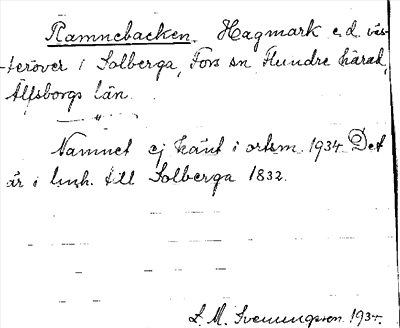 Ramnebacken. Hagmark e.d. väs-
teröver i Solberga, Fors sn Flundre härad,
Älfsborgs län.
— " —
Namnet ej känt i ortsn. 1934. Det
är i lmh. till Solberga 1832.
S. M. Svenungsson. 1934.